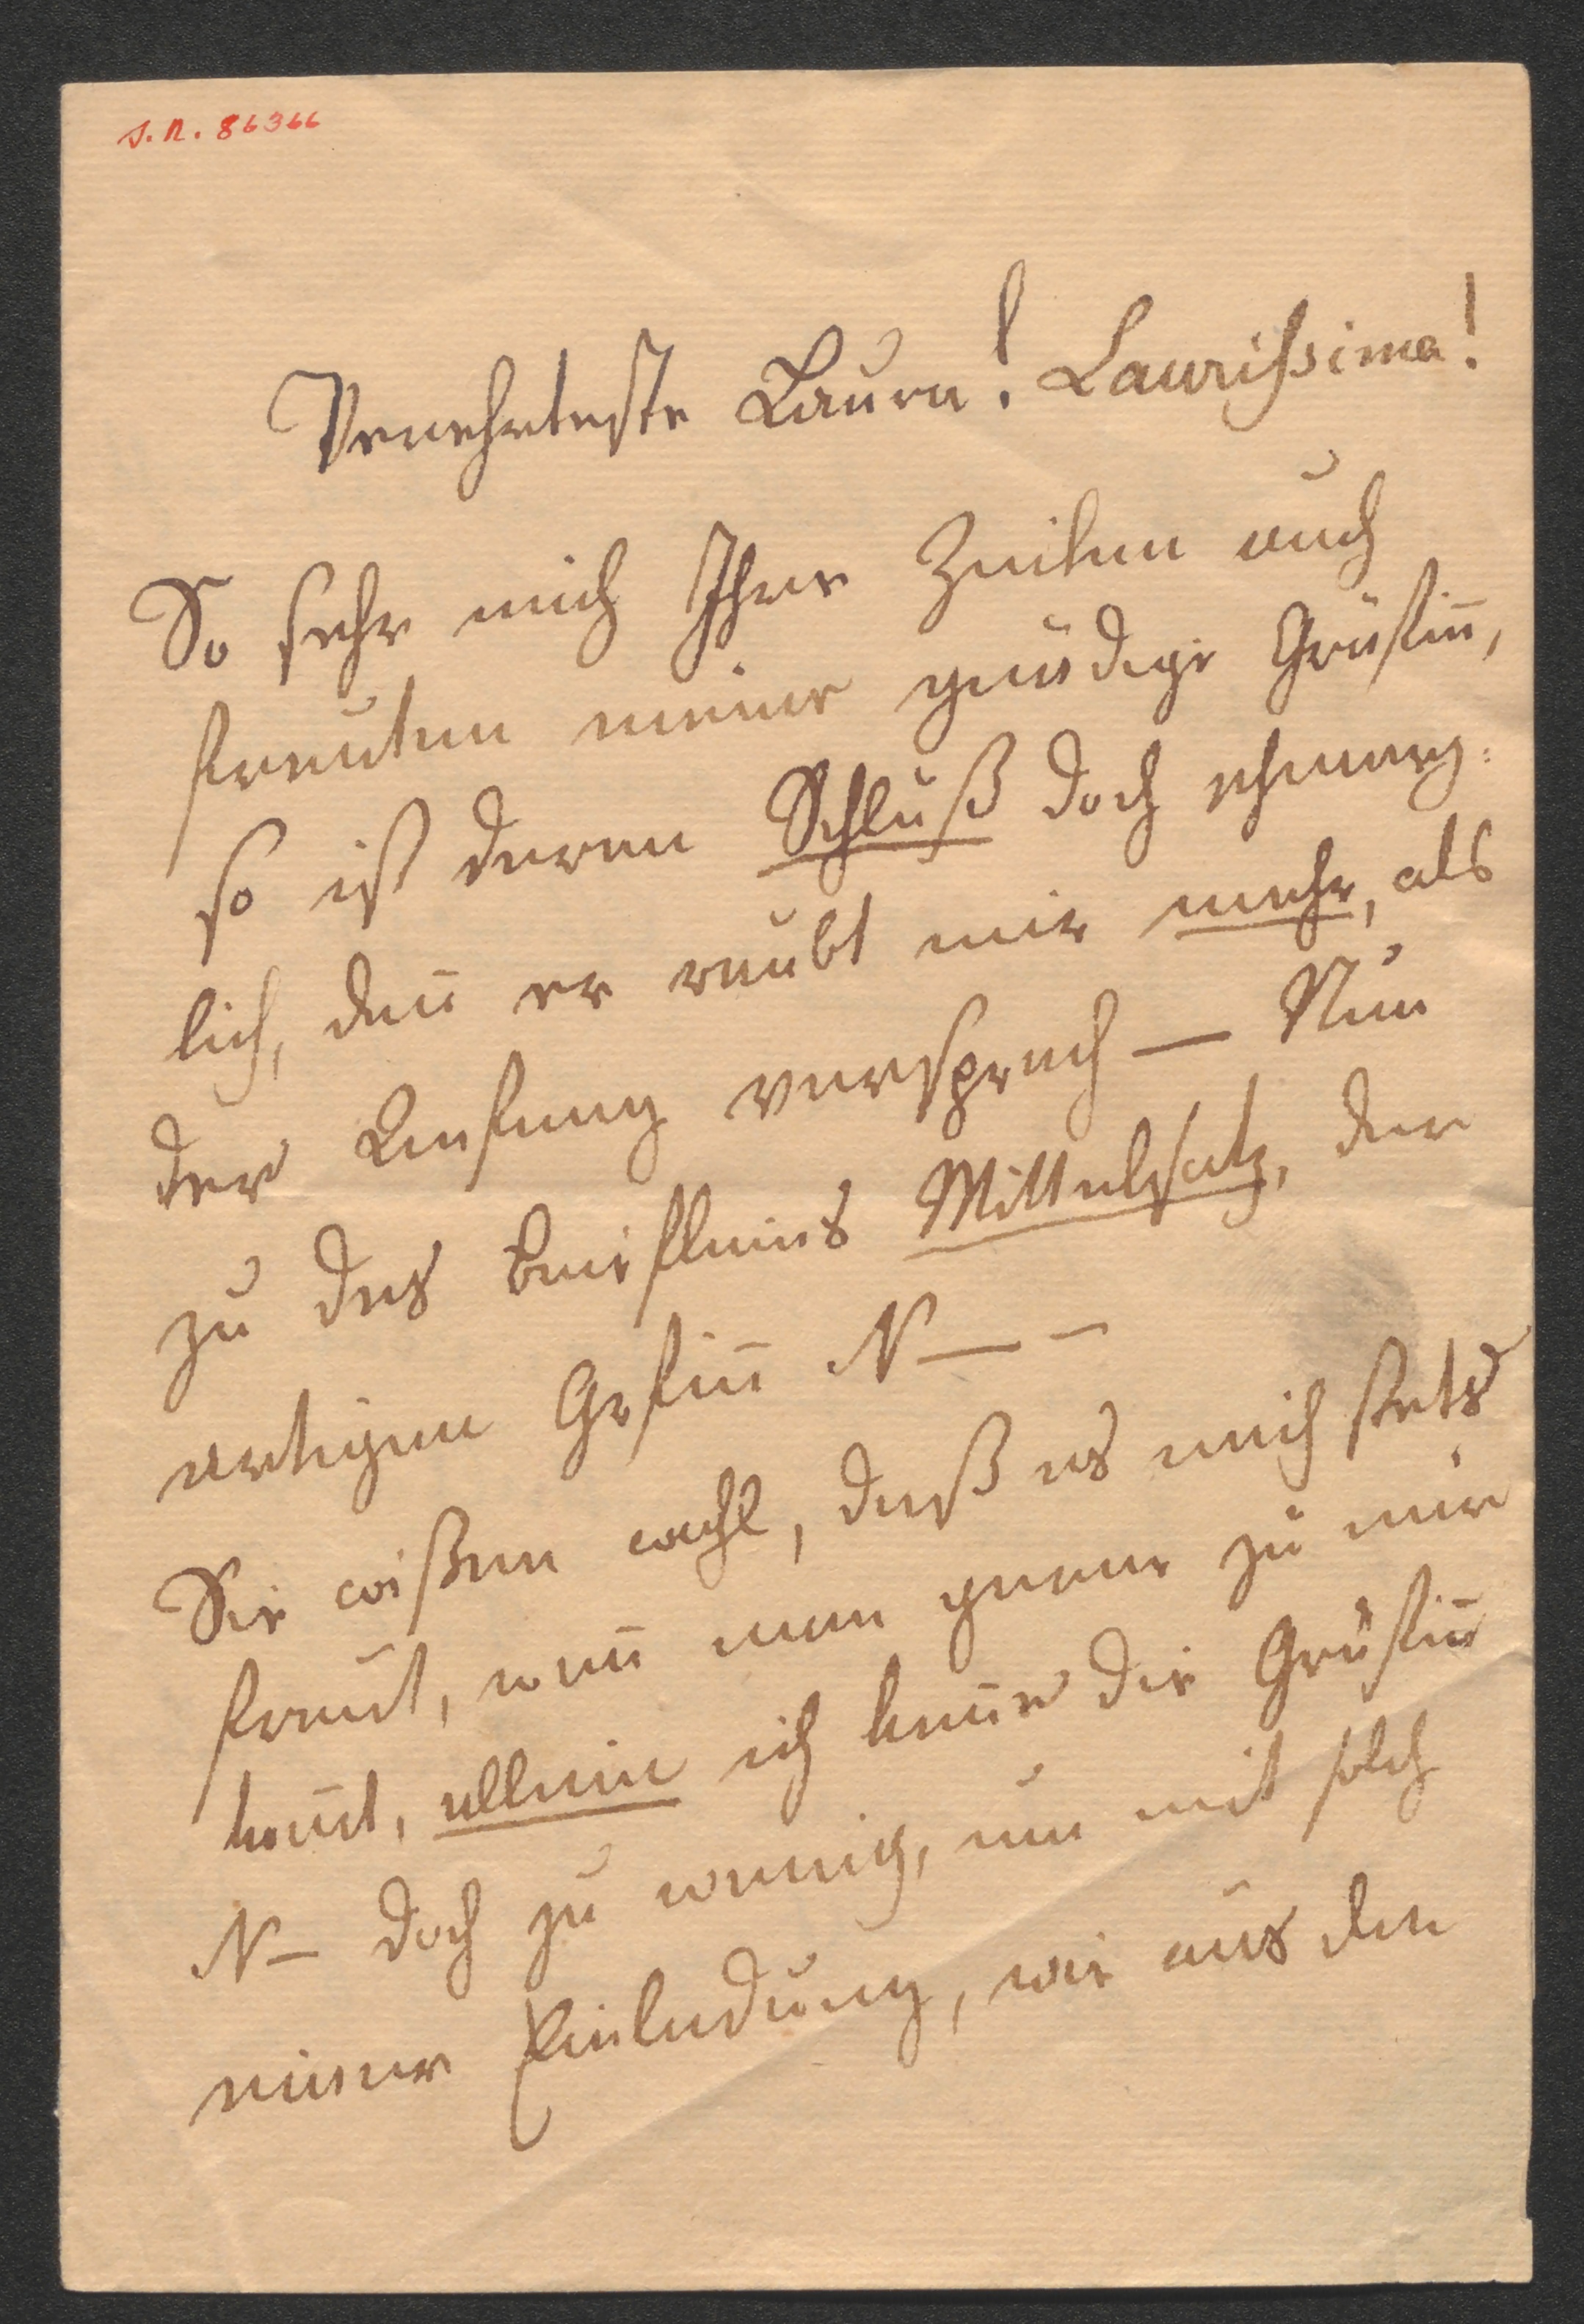 I.N. 86366
Verehrteste Laura! Laurissima!
So sehr mich Ihre Zeilen auch
freuten meine gnädige Gräfin̄,
so ist deren Schluß doch
lich, den̄ er raubt mir mehr, als
der Anfang versprach — Nun
zu des Briefleins Mittelsatz, der
artigen Gräfin̄ N — —
Sie wißen wohl, daß es mich stets
freut, wen̄ man gerne zu mir
kom̄t, allein ich ken̄e die Gräfin̄
N — doch zu wenig, um mit solch
einer Einladung, wie aus den